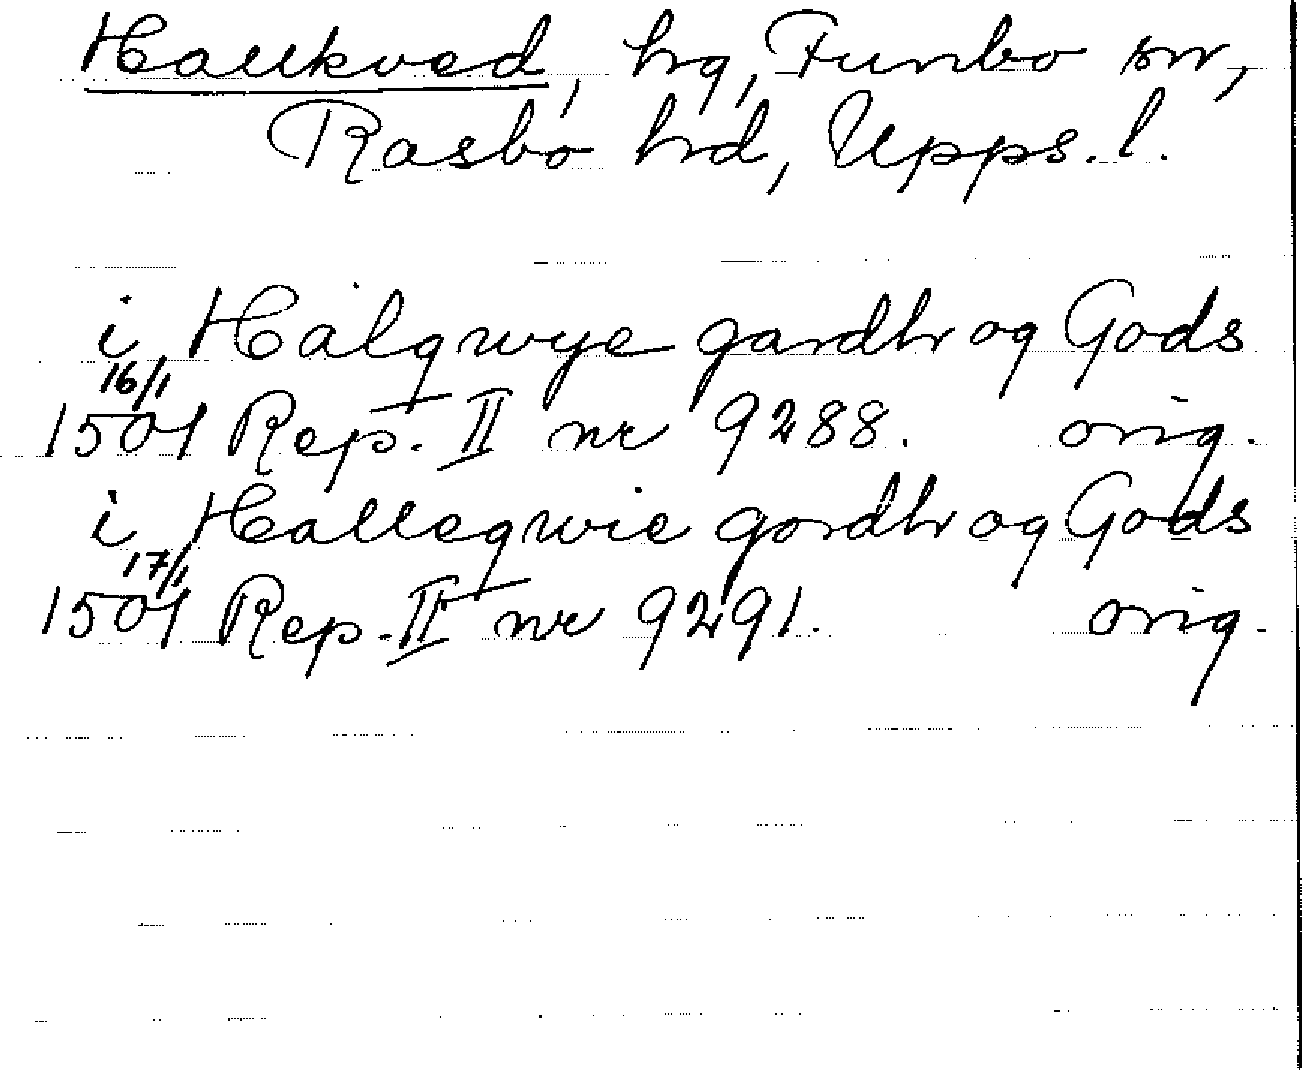 Hallkved, hg, Funbo sn,
Rasbo hd, Upps. l.
i Halqwye gardhr og Gods
16/1
1501 Rep. II nr 9288. orig.
i Hallegwie gordhr og Gods
17/1
1501 Rep. II nr 9291. orig.